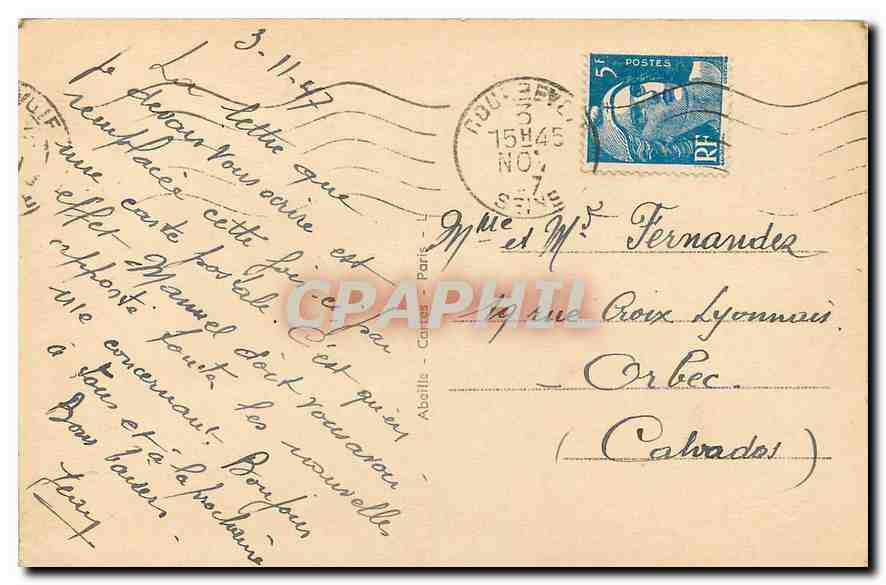 3-11-47
La lettre que
je devais vous écrire est
remplacée cette fois-ci par
une carte postale. C'est qu'en
effet Manuel doit vous avoir
apporté toutes les nouvelles
me concernant. Bonjour
à tous et à la prochaine
Bons baisers.
5F
POSTES
RF
15H45
NOV
SEINE
Mme et Mr Fernandez
19 rue Croix Lyonnais.
- Orbec.
(Calvados)
Abeille - Cartes - Paris -
CPAPHIL